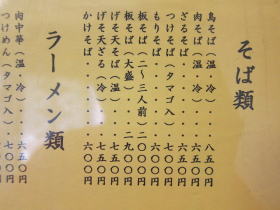 そば類
鳥そば(温・冷)・・八五〇円
肉そば(温・冷)・・六五〇円
ざるそば・・・・・六五〇円
つけそば・・・・・七〇〇円
もりそば・・・・・六〇〇円
板そば(二〜三人前)二〇〇〇円
板そば(大盛)・・・九〇〇円
げそ天そば(温)・・七五〇円
げそ天ざる(冷)・・七五〇円
かけそば・・・・・六〇〇円
ラーメン類
肉中華(温・冷)・・六五〇円
つけめん(タマゴ入)・七〇〇円